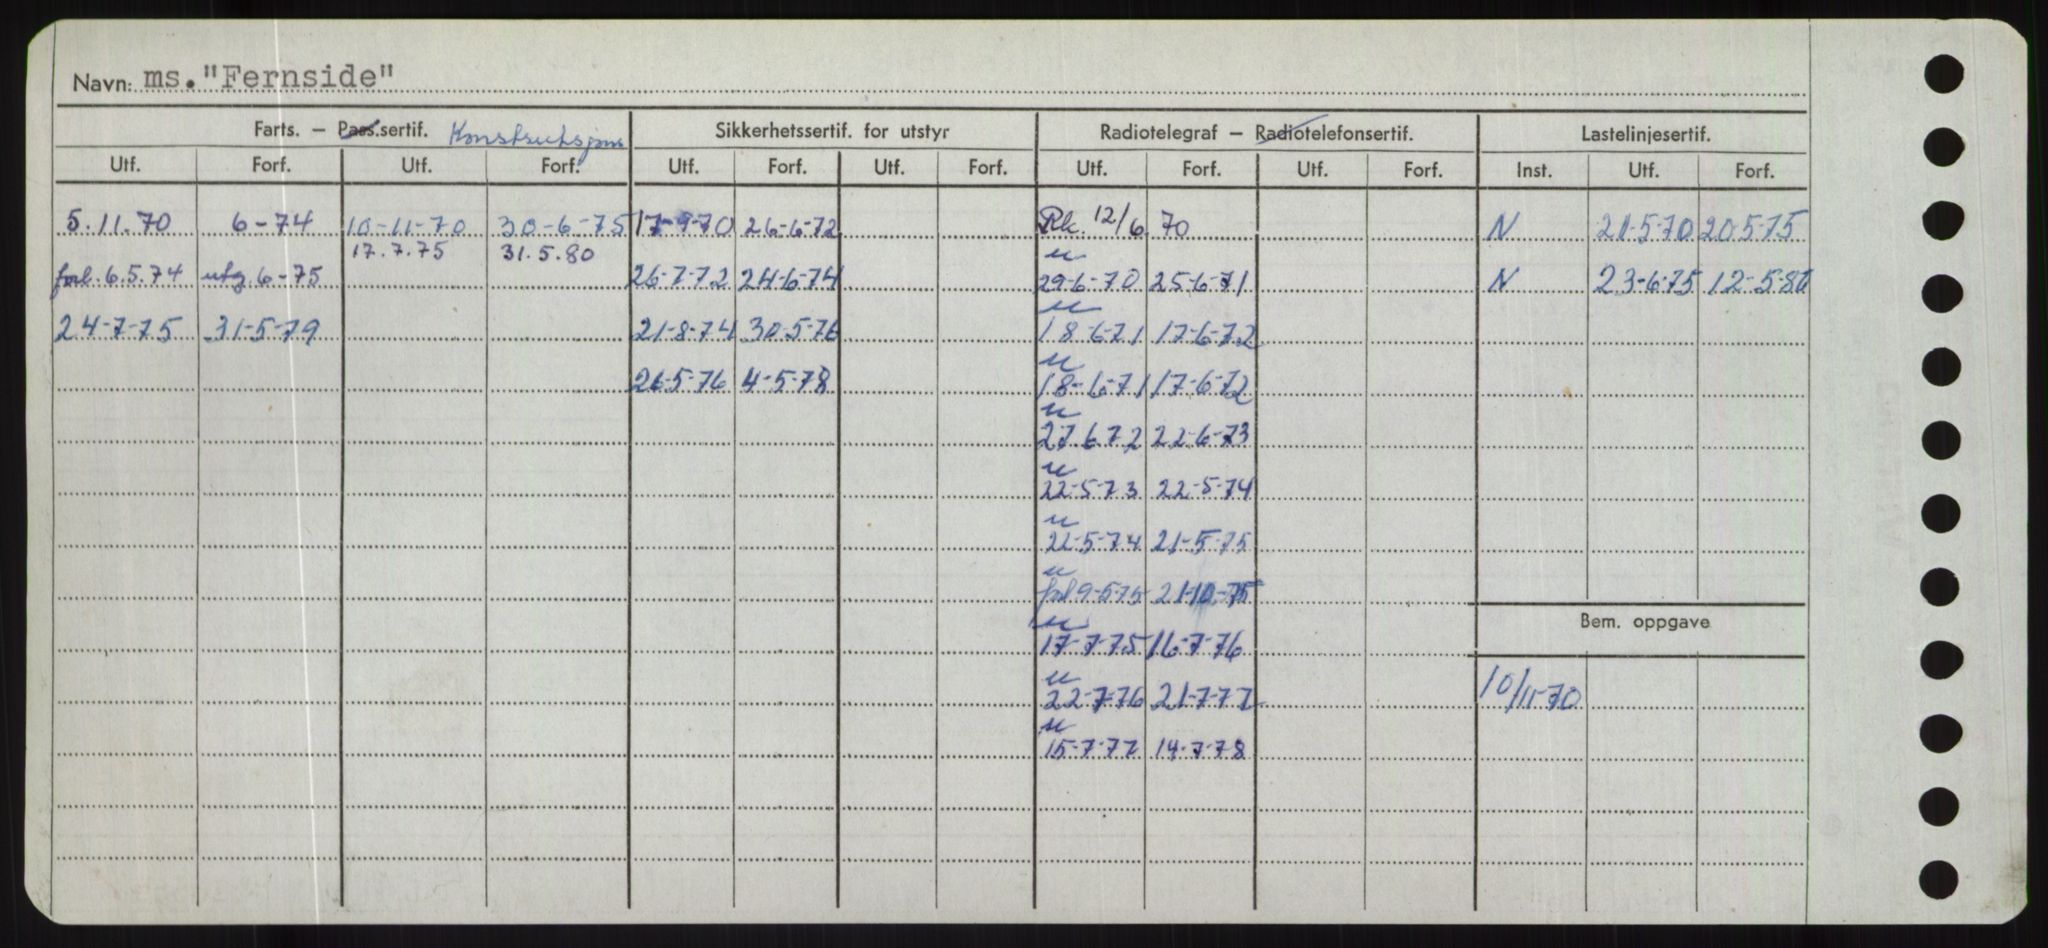 Navn: ms. "Fernside"
Farts. — Pass.sertif. Konstruksjons Sikkerhetssertif. for utstyr Radiotelegraf — Radiotelefonsertif. Lastelinjesertif.
Utf. Forf. Utf. Forf. Utf. Forf. Utf. Forf. Utf. Forf. Utf. Forf. Inst. Utf. Forf.
5.11.70 6-74 10-11-70 30-6-75 17-9-70 26-6-72 12/6 70 N 21-5-70 20-5-75
17.7.75 31.5.80 u
forl. 6.5.74 utg 6-75 26-7-72 24-6-74 29-6-70 25-6-71 N 23-6-75 12-5-80
u
24-7-75 31-5-79 21-8-74 30-5-76 18-6-71 17-6-72
u
26-5-76 4-5-78 18-6-71 17-6-72
u
27.6.72 22-6-73
u
22-5-73 22-5-74
u
22-5-74 21-5-75
u
forl 9-5-75 21-10-75
u
Bem. oppgave
17-7-75 16-7-76
u
22-7-76 21-7-77 10/11-70
u
15-7-77 14-7-78